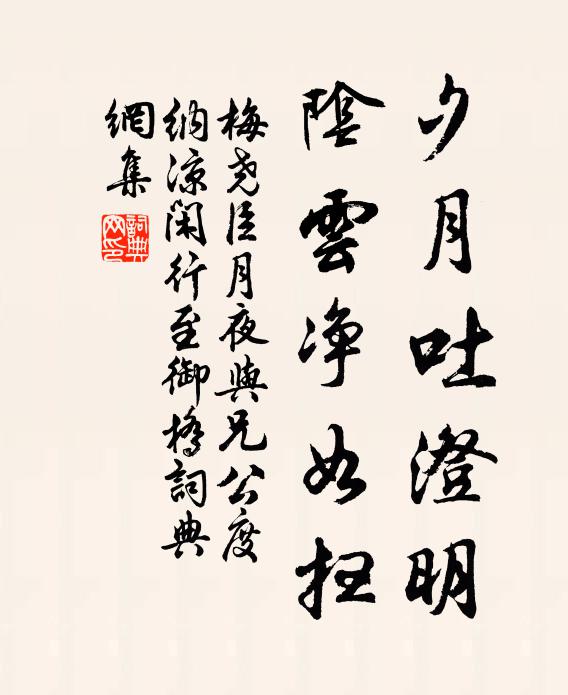 夕月吐澄明
陰雲净如扫
梅尧臣月夜與兄公度
納凉閑行至御橋詞典
網集
詞典
网印